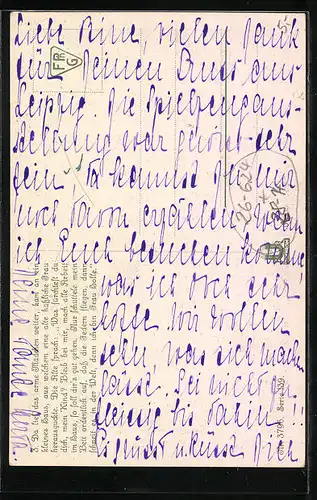 Liebe Line, vielen Dank
für Deinen Brief aus
Leipzig. Die Spielzeugaus-
stellung war gewiß sehr
fein. Da kannst Du mir
noch davon erzählen. Wenn
ich Euch besuchen könnte
was ich doch sehr
hoffe. Wir wollen
sehn, was sich machen
lässt. Sei nicht
fleissig bis dahin!!
Es grüßt u. küsst Dich
Deine Tante
F
G
26-624
3. Da lief das arme Mädchen weiter, kam an ein
kleines Haus, aus welchem eine alte häßliche Frau
herausguckte. Die Alte sprach: „Was fürchtest du
dich, mein Kind? Bleib bei mir, mach alle Arbeit
im Haus, so soll dir's gut gehen. Nur schüttele mein
Bett ordentlich auf, daß die Federn fliegen, dann
schneit es in der Welt, denn ich bin Frau Holle.“
Serie 130